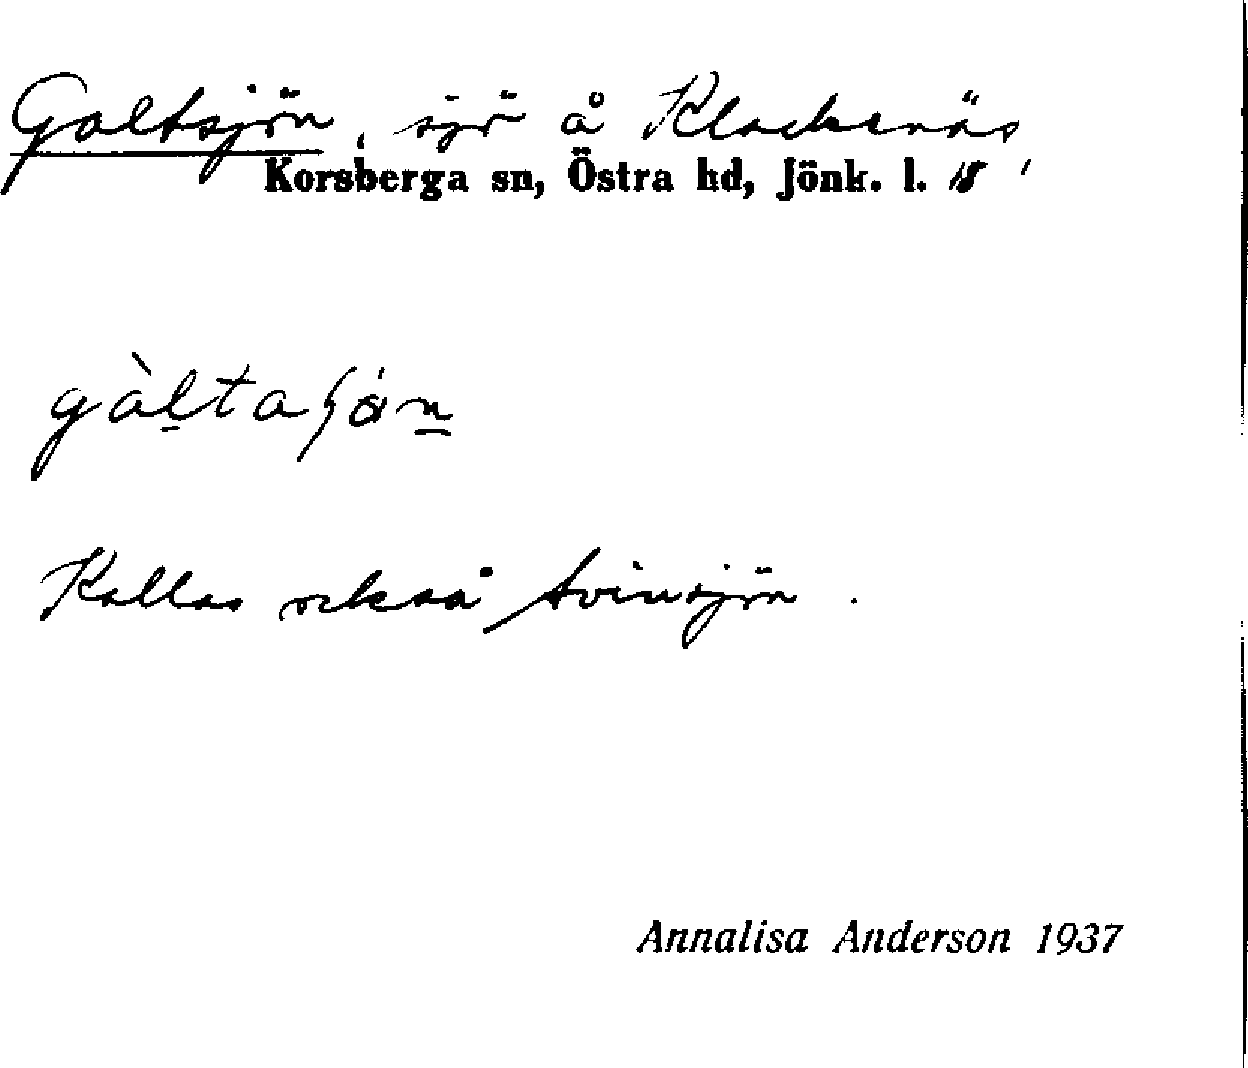 Galtsjön, sjö å Klackenäs
Korsberga sn, Östra hd, Jönk. l. 18
Kallas också Svinsjön.
Annalisa Anderson 1937